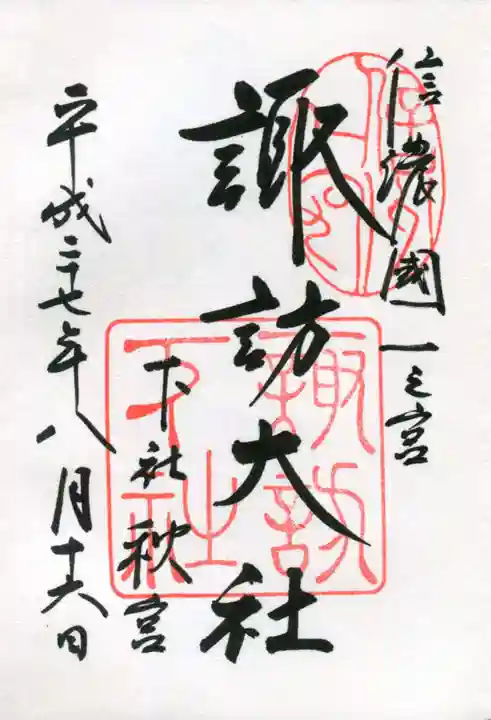 信濃國一之宮
諏訪大社
下社秋宮
平成二十七年八月十六日
諏訪
大社